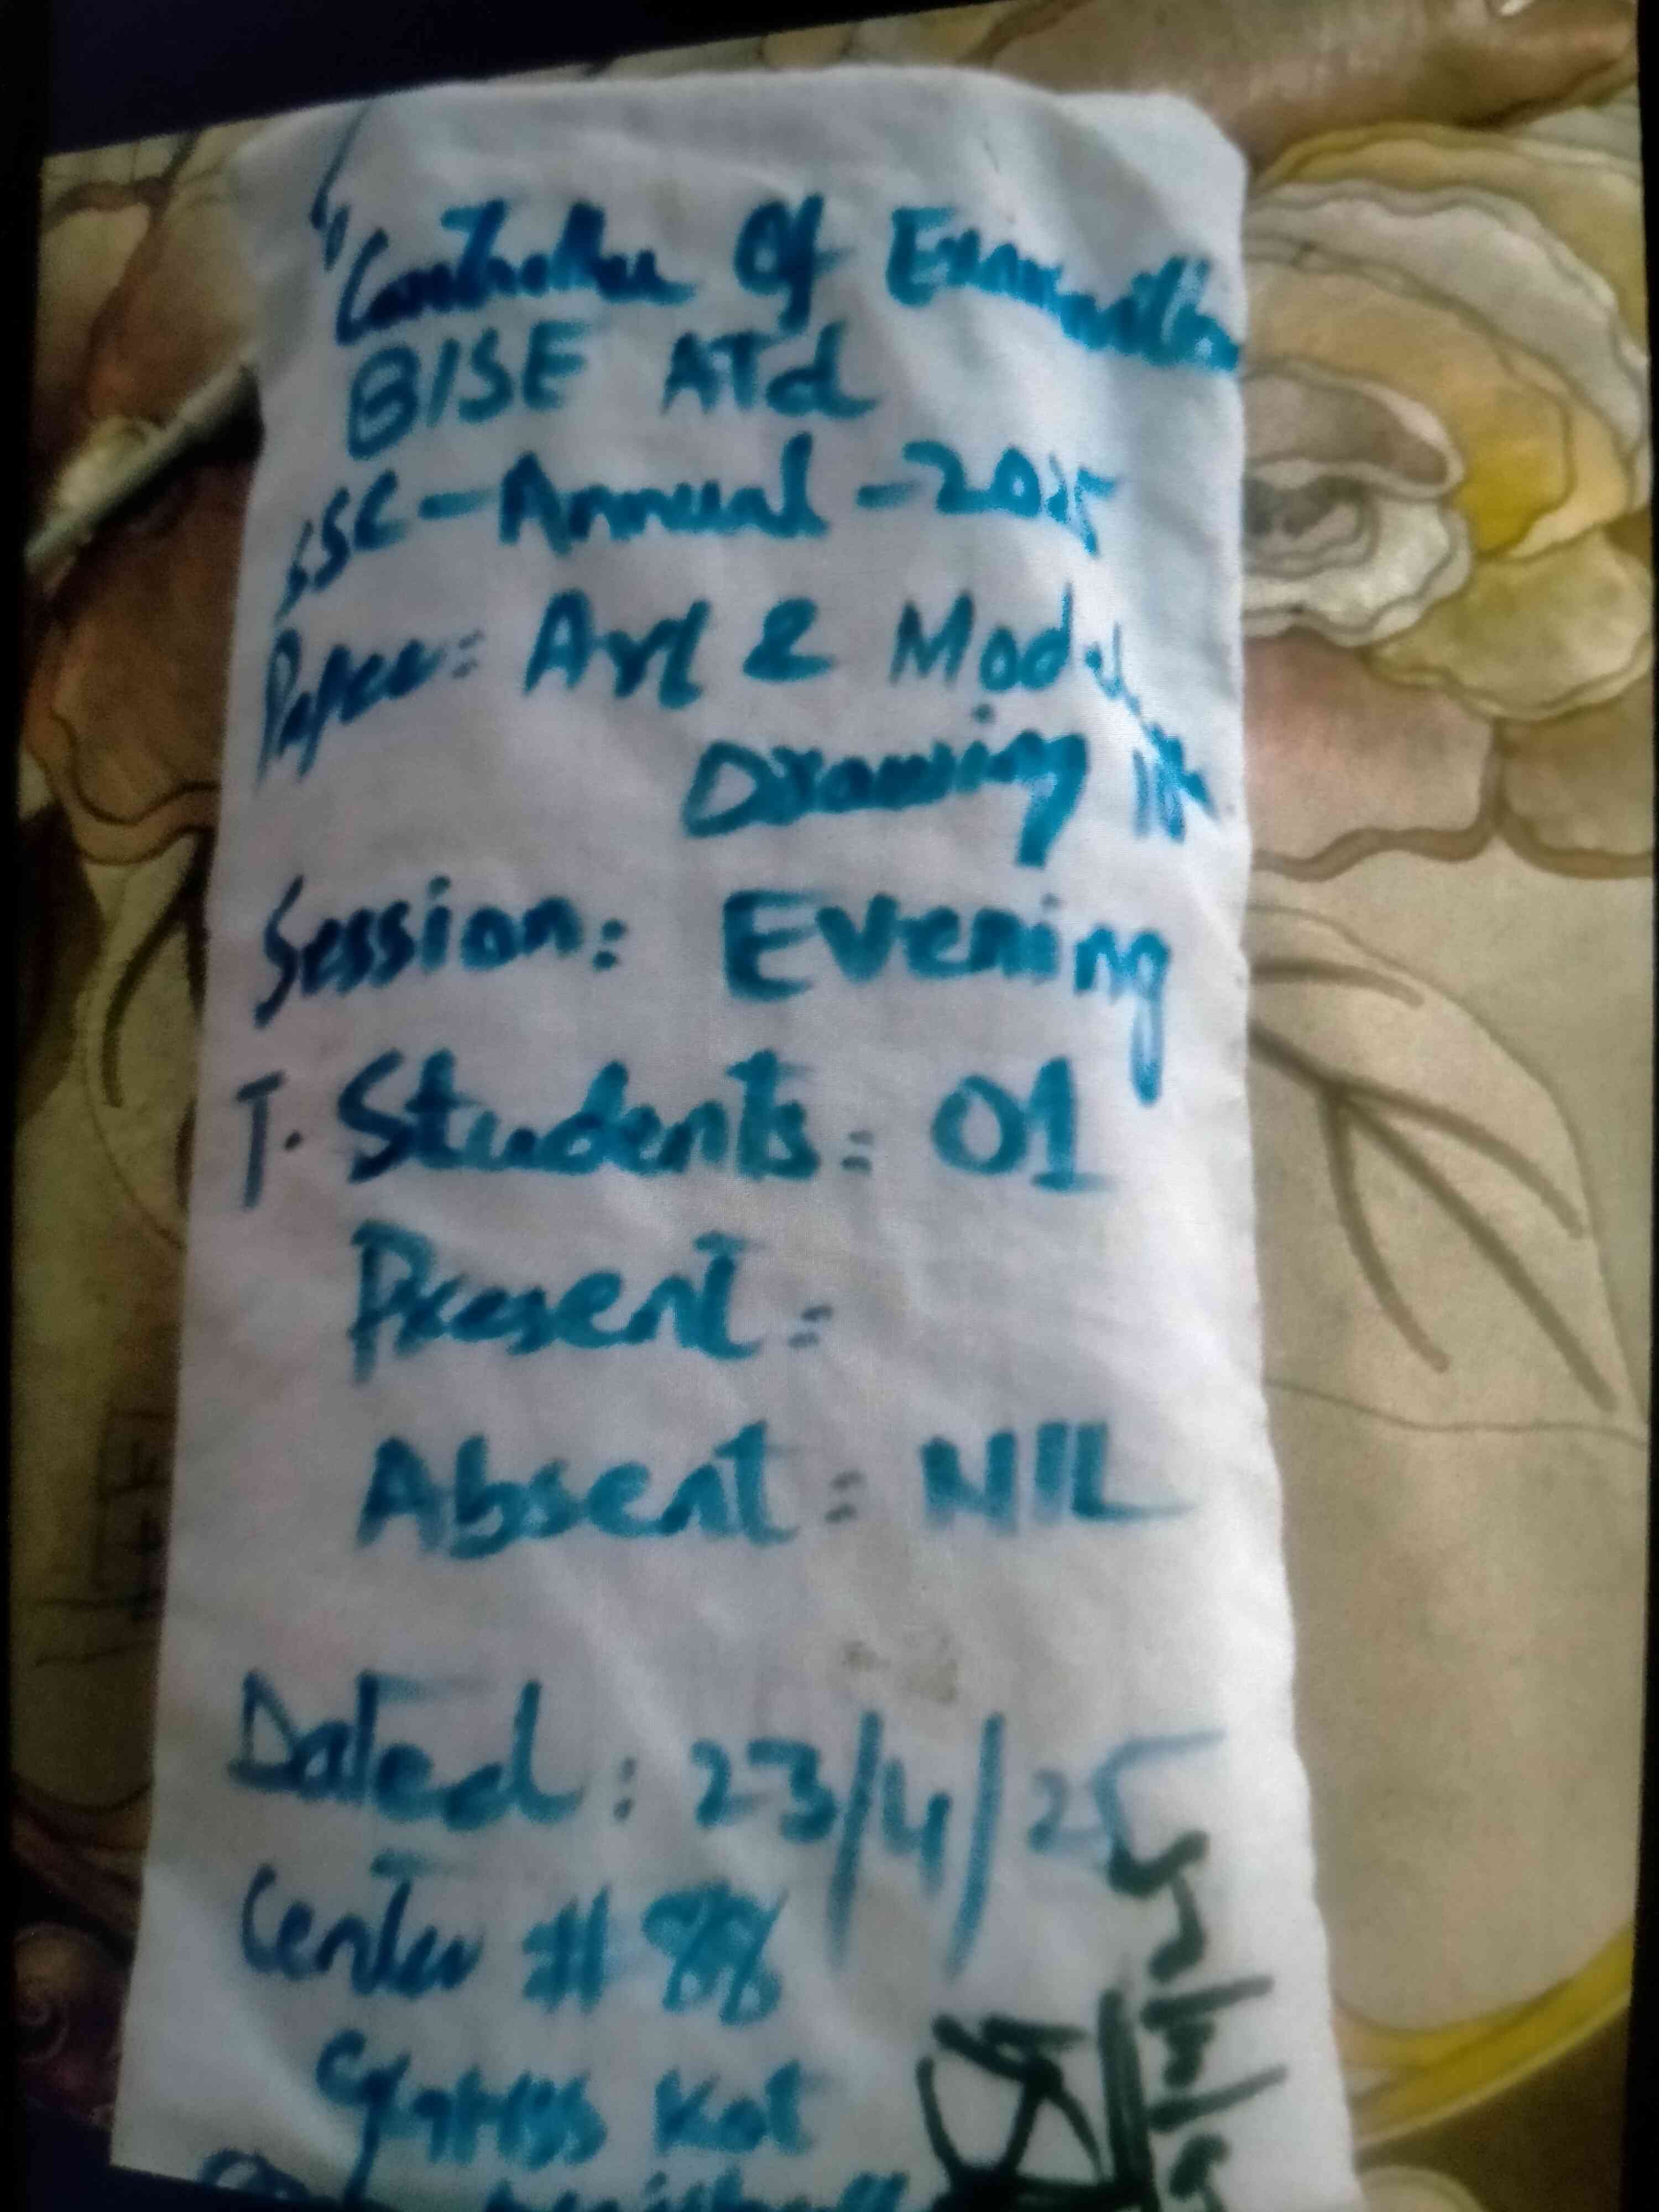 To
Controller Of Examination
BISE ATd
SSC - Annual - 2025
Paper: Art & Model
Drawing
Session: Evening
T. Students = 01
Present =
Absent = NIL
Dated: 23/4/25
Center # 88
Kot